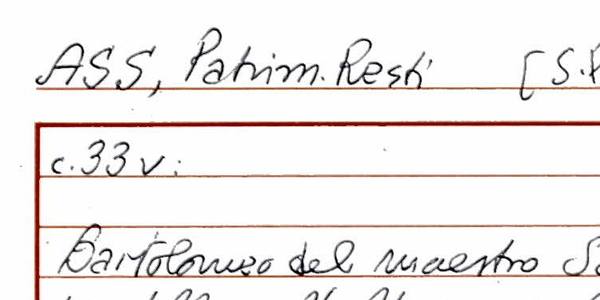 ASS, Patrim. Resti [S.P
c. 33 v:
Bartolomeo del maestro